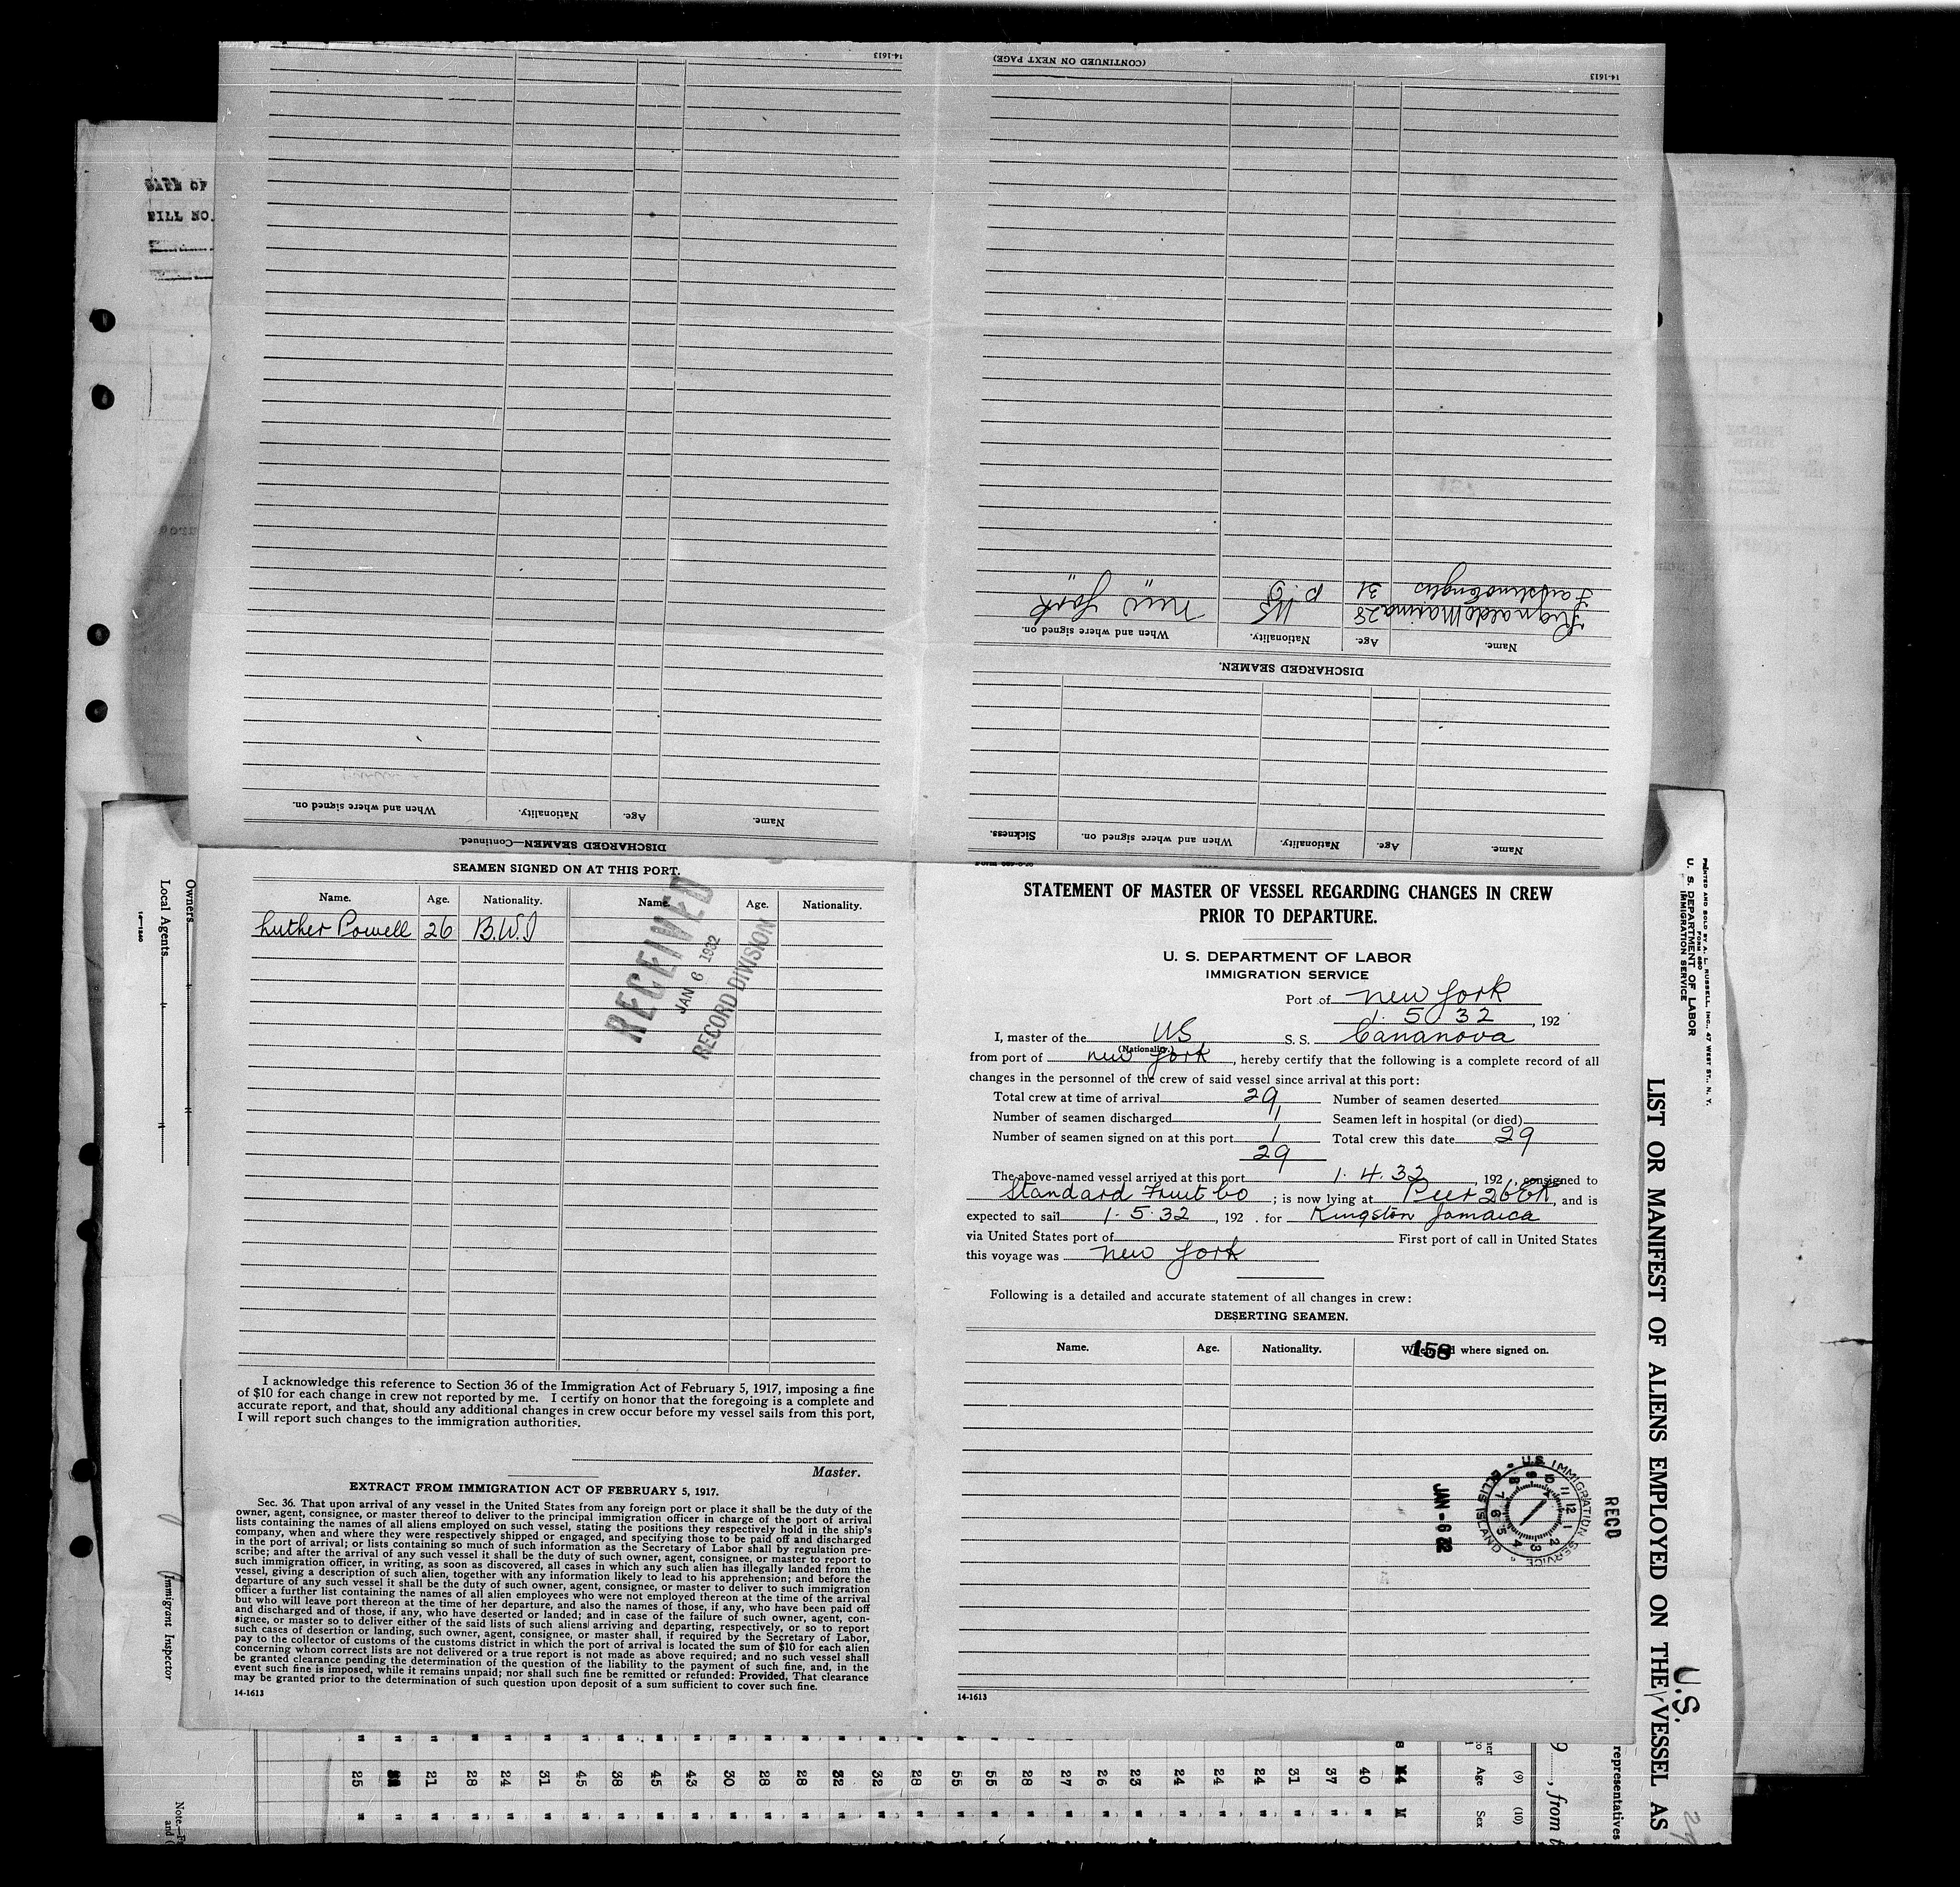 14-1613
(CONTINUED ON NEXT PAGE)
14-1613
DATE OF
BILL NO.
DISCHARGED SEAMEN—Continued.
Name. Age. Nationality. When and where signed on.
Name. Age. Nationality. When and where signed on. Sickness.
DISCHARGED SEAMEN.
Name. Age. Nationality. When and where signed on.
28 US New York
31 P.R " "
SEAMEN SIGNED ON AT THIS PORT.
Name. Age. Nationality. Name. Age. Nationality.
Luther Powell 26 B.W.I
RECEIVED
JAN 6 1932
RECORD DIVISION
I acknowledge this reference to Section 36 of the Immigration Act of February 5, 1917, imposing a fine
of $10 for each change in crew not reported by me. I certify on honor that the foregoing is a complete and
accurate report, and that, should any additional changes in crew occur before my vessel sails from this port,
I will report such changes to the immigration authorities.
Master.
EXTRACT FROM IMMIGRATION ACT OF FEBRUARY 5, 1917.
Sec. 36. That upon arrival of any vessel in the United States from any foreign port or place it shall be the duty of the
owner, agent, consignee, or master thereof to deliver to the principal immigration officer in charge of the port of arrival
lists containing the names of all aliens employed on such vessel, stating the positions they respectively hold in the ship's
company, when and where they were respectively shipped or engaged, and specifying those to be paid off and discharged
in the port of arrival; or lists containing so much of such information as the Secretary of Labor shall by regulation pre-
scribe; and after the arrival of any such vessel it shall be the duty of such owner, agent, consignee, or master to report to
such immigration officer, in writing, as soon as discovered, all cases in which any such alien has illegally landed from the
vessel, giving a description of such alien, together with any information likely to lead to his apprehension; and before the
departure of any such vessel it shall be the duty of such owner, agent, consignee, or master to deliver to such immigration
officer a further list containing the names of all alien employees who were not employed thereon at the time of the arrival
but who will leave port thereon at the time of her departure, and also the names of those, if any, who have been paid off
and discharged and of those, if any, who have deserted or landed; and in case of the failure of such owner, agent, con-
signee, or master so to deliver either of the said lists of such aliens arriving and departing, respectively, or so to report
such cases of desertion or landing, such owner, agent, consignee, or master shall, if required by the Secretary of Labor,
pay to the collector of customs of the customs district in which the port of arrival is located the sum of $10 for each alien
concerning whom correct lists are not delivered or a true report is not made as above required; and no such vessel shall
be granted clearance pending the determination of the question of the liability to the payment of such fine, and, in the
event such fine is imposed, while it remains unpaid; nor shall such fine be remitted or refunded: Provided, That clearance
may be granted prior to the determination of such question upon deposit of a sum sufficient to cover such fine.
14-1613
STATEMENT OF MASTER OF VESSEL REGARDING CHANGES IN CREW
PRIOR TO DEPARTURE.
U. S. DEPARTMENT OF LABOR
IMMIGRATION SERVICE
Port of New York
1. 5 32, 192
I, master of the US S. S. Cananova
(Nationality.)
from port of New York, hereby certify that the following is a complete record of all
changes in the personnel of the crew of said vessel since arrival at this port:
Total crew at time of arrival 29 Number of seamen deserted
Number of seamen discharged 1 Seamen left in hospital (or died)
Number of seamen signed on at this port 1 Total crew this date 29
29
The above-named vessel arrived at this port 1. 4. 32, 192, consigned to
Standard Fruit Co; is now lying at Peer 26 ER, and is
expected to sail 1. 5. 32, 192 . for Kingston Jamaica
via United States port of First port of call in United States
this voyage was New York
Following is a detailed and accurate statement of all changes in crew:
DESERTING SEAMEN.
Name. Age. Nationality. When and where signed on.
158
RECD
U.S. IMMIGRATION SERVICE ELLIS ISLAND
JAN -6 32
14-1613
PRINTED AND SOLD BY A. L. RUSSELL, INC., 47 WEST ST., N. Y.
FORM 680
U. S. DEPARTMENT OF LABOR
IMMIGRATION SERVICE
LIST OR MANIFEST OF ALIENS EMPLOYED ON THE VESSEL AS
U.S.
29
representatives
9, from
Owners
Local Agents
14—1240
Immigrant Inspector
(9) (10)
Age Sex
44 40 37 31 24 24 24 23 26 27 28 55 55 28 32 32 28 28 30 43 45 38 45 31 24 28 21 25
M